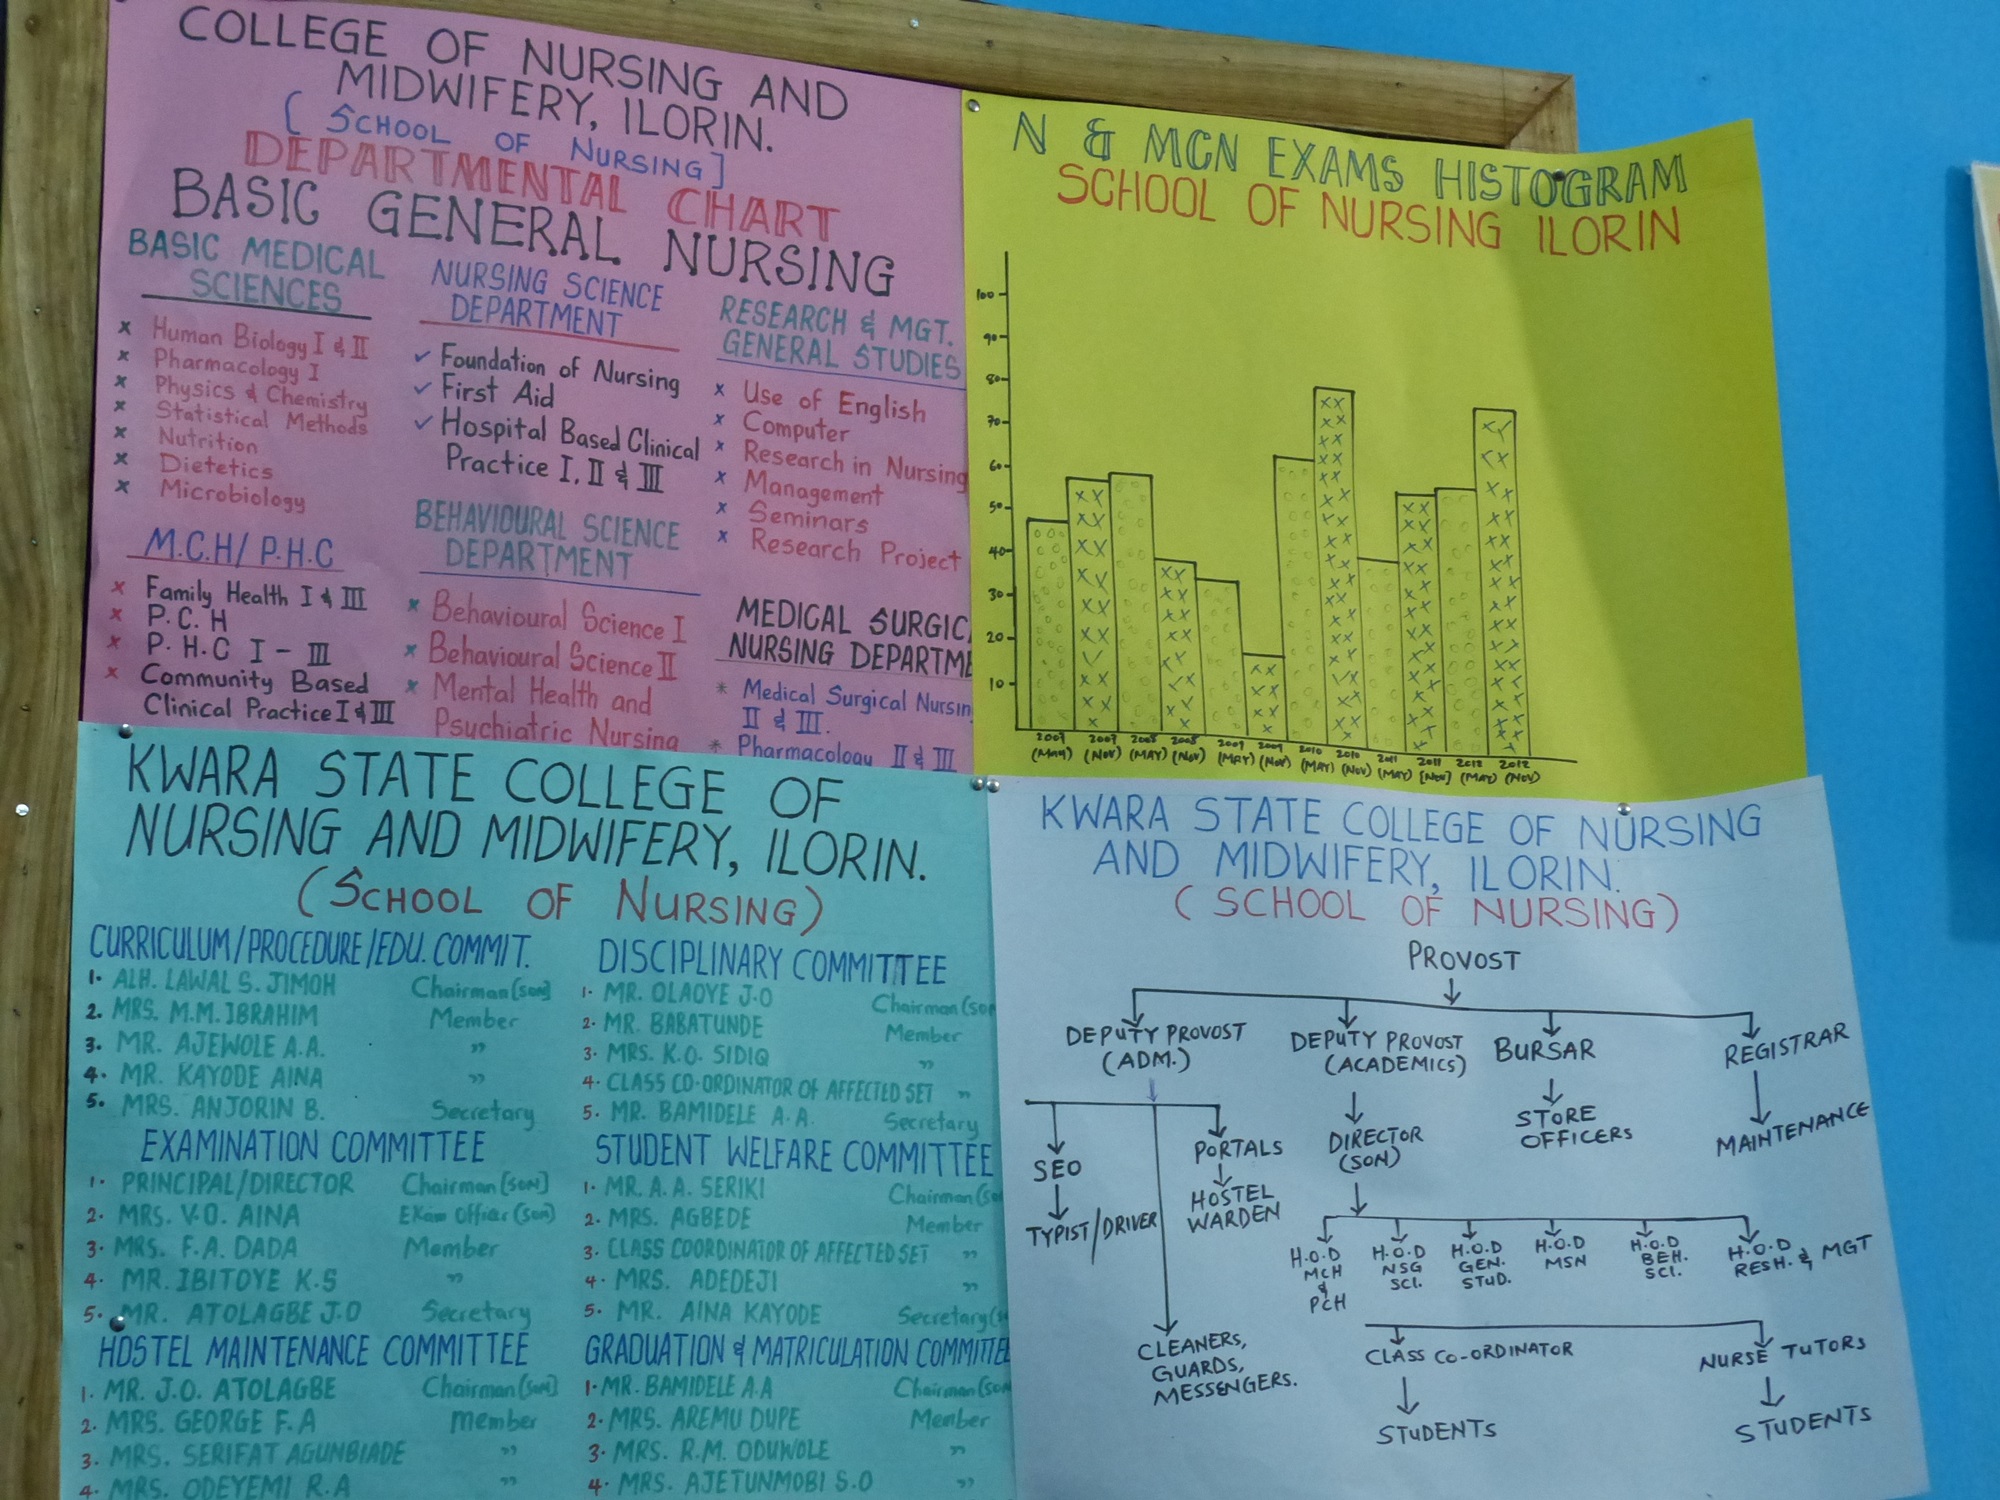 COLLEGE OF NURSING AND
MIDWIFERY, ILORIN.
( SCHOOL OF NURSING ]
DEPARTMENTAL CHART
BASIC GENERAL NURSING
BASIC MEDICAL
SCIENCES
x Human Biology I & II
x Pharmacology I
x Physics & Chemistry
x Statistical Methods
x Nutrition
x Dietetics
x Microbiology
M.C.H/ P.H.C
x Family Health I & III
x P.C.H
x P.H.C I - III
x Community Based
Clinical Practice I & III
NURSING SCIENCE
DEPARTMENT
✓ Foundation of Nursing
✓ First Aid
✓ Hospital Based Clinical
Practice I, II & III
BEHAVIOURAL SCIENCE
DEPARTMENT
x Behavioural Science I
x Behavioural Science II
x Mental Health and
Psychiatric Nursing
RESEARCH & MGT.
GENERAL STUDIES
x Use of English
x Computer
x Research in Nursing
x Management
x Seminars
x Research Project
MEDICAL SURGIC
NURSING DEPARTME
* Medical Surgical Nursin
II & III.
* Pharmacology II & III
N & MCN EXAMS HISTOGRAM
SCHOOL OF NURSING ILORIN
100
90
80
70
60
50
40
30
20
10
2007 2007 2008 2008 2009 2009 2010 2010 2011 2011 2012 2012
(MAY) (NOV) (MAY) (NOV) (MAY) (NOV) (MAY) (NOV) (MAY) [NOV] (MAY) (NOV)
KWARA STATE COLLEGE OF
NURSING AND MIDWIFERY, ILORIN.
(SCHOOL OF NURSING)
CURRICULUM/PROCEDURE/EDU. COMMIT.
1. ALH. LAWAL S. JIMOH Chairman (SON)
2. MRS. M.M. IBRAHIM Member
3. MR. AJEWOLE A.A. "
4. MR. KAYODE AINA "
5. MRS. ANJORIN B. Secretary
EXAMINATION COMMITTEE
1. PRINCIPAL/DIRECTOR Chairman (SON]
2. MRS. V.O. AINA Exam Officer (SON)
3. MRS. F.A. DADA Member
4. MR. IBITOYE K.S "
5. MR. ATOLAGBE J.O Secretary
HOSTEL MAINTENANCE COMMITTEE
1. MR. J.O. ATOLAGBE Chairman (SON]
2. MRS. GEORGE F.A member
3. MRS. SERIFAT AGUNBIADE "
4. MRS. ODEYEMI R.A "
DISCIPLINARY COMMITTEE
1. MR. OLAOYE J.O Chairman (SON
2. MR. BABATUNDE Member
3. MRS. K.O. SIDIQ "
4. CLASS CO-ORDINATOR OF AFFECTED SET "
5. MR. BAMIDELE A.A. Secretary
STUDENT WELFARE COMMITTEE
1. MR. A.A. SERIKI Chairman (SO
2. MRS. AGBEDE Member
3. CLASS COORDINATOR OF AFFECTED SET "
4. MRS. ADEDEJI "
5. MR. AINA KAYODE Secretary (S
GRADUATION & MATRICULATION COMMITTEE
1. MR. BAMIDELE A.A Chairman (SON
2. MRS. AREMU DUPE Member
3. MRS. R.M. ODUWOLE "
4. MRS. AJETUNMOBI S.O "
KWARA STATE COLLEGE OF NURSING
AND MIDWIFERY, ILORIN.
( SCHOOL OF NURSING)
PROVOST
DEPUTY PROVOST
(ADM.)
DEPUTY PROVOST
(ACADEMICS)
BURSAR
REGISTRAR
SEO
TYPIST/DRIVER
PORTALS
HOSTEL
WARDEN
CLEANERS,
GUARDS,
MESSENGERS.
DIRECTOR
(SON)
STORE
OFFICERS
MAINTENANCE
H.O.D
MCH
&
PCH
H.O.D
NSG
SCI.
H.O.D
GEN.
STUD.
H.O.D
MSN
H.O.D
BEH.
SCI.
H.O.D
RESH. & MGT
CLASS CO-ORDINATOR
STUDENTS
NURSE TUTORS
STUDENTS